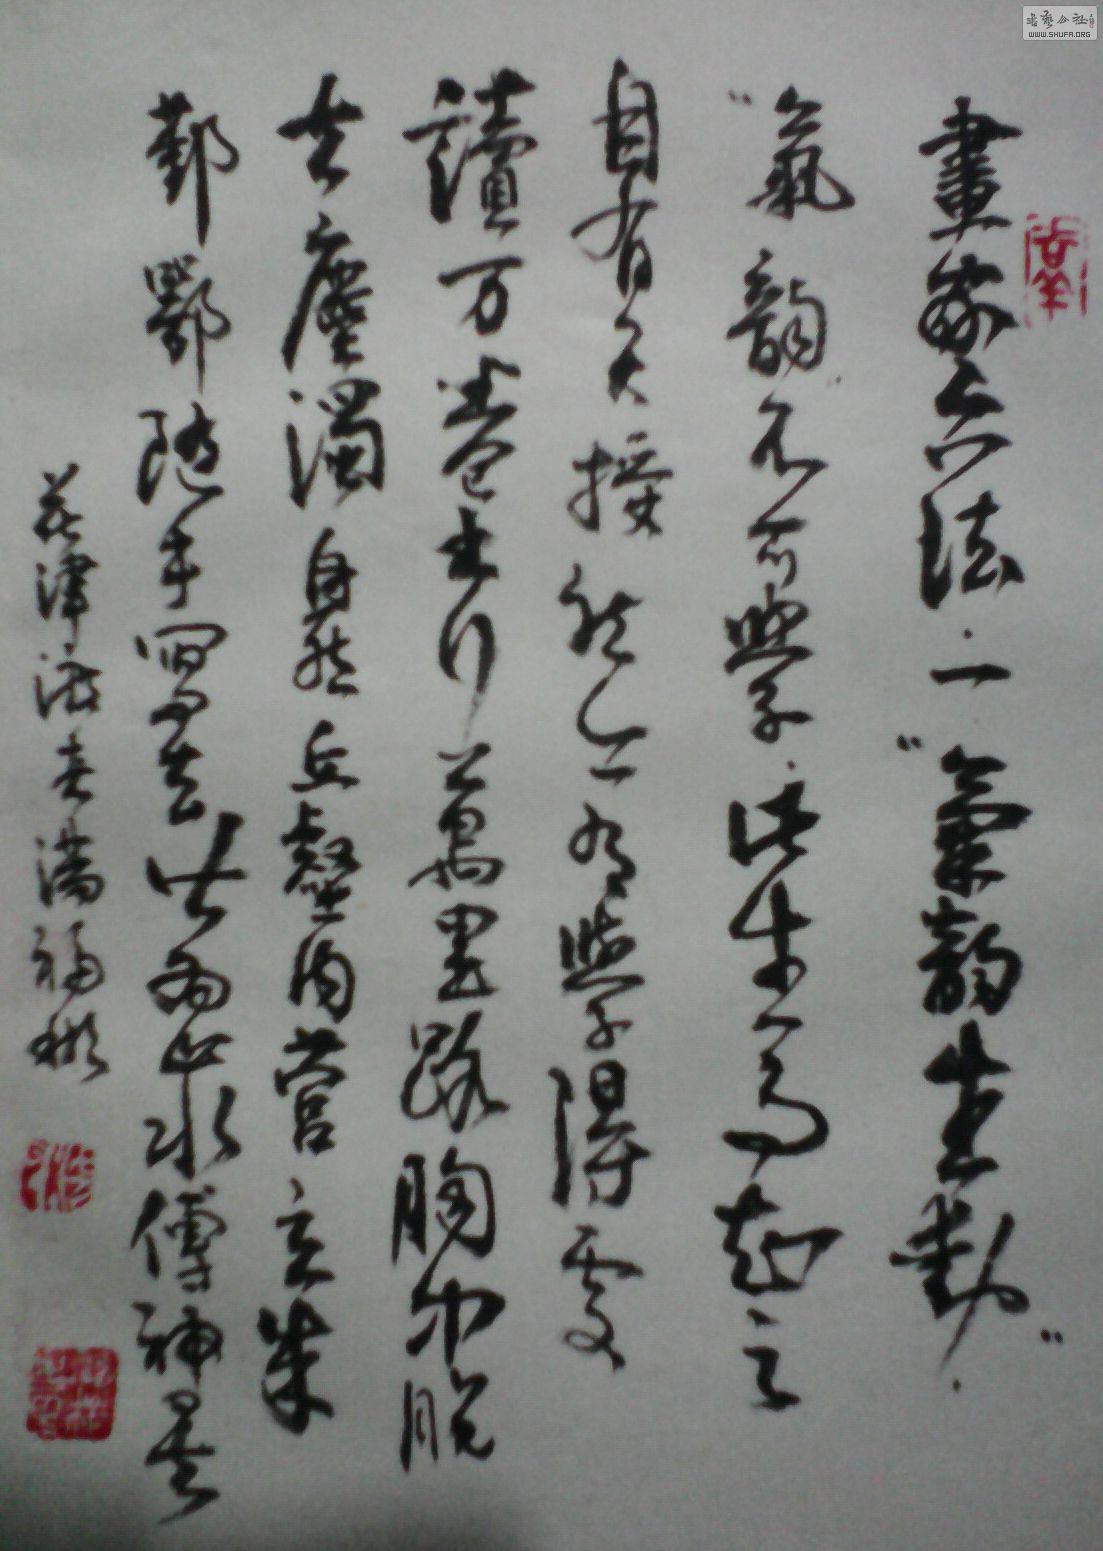 畫家六法.一“氣韻生動”.
“氣韻”不可學.此生而知之
自有天授然亦有學得處
讀万卷書行萬里路胸中脫
去塵濁自然丘壑內營立成
鄞鄂隨手寫出皆為山水傳神矣
湯福彬
書法公社
WWW.SHUFA.ORG